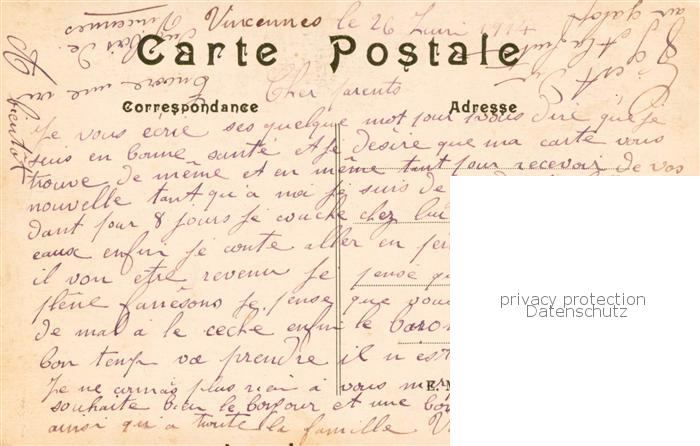 Vincennes le 26 Juin 1914
Carte Postale
Cher parents
Correspondance
Adresse
Je vous ecrie ses quelque mot pour vous dire que je
suis en bonne santé et je désire que ma carte vous
trouve de même et en même tant pour recevoir de vos
nouvelle tant qu'a moi je suis de
dant pour 8 jours je couche chez lui
eaux enfin je conte aller en per
il von etre revenu je pense qu
plêne je pense que vous
de mal à le ceche enfin le baron
bon temp va prendre il n est
Je ne plus rien à vous m
souhaite bien le bonjour et une bon
ainsi qu a toute la famille V
A bientôt
Encore une vue
Bois de
Vincennes
au galop
privacy protection
Datenschutz